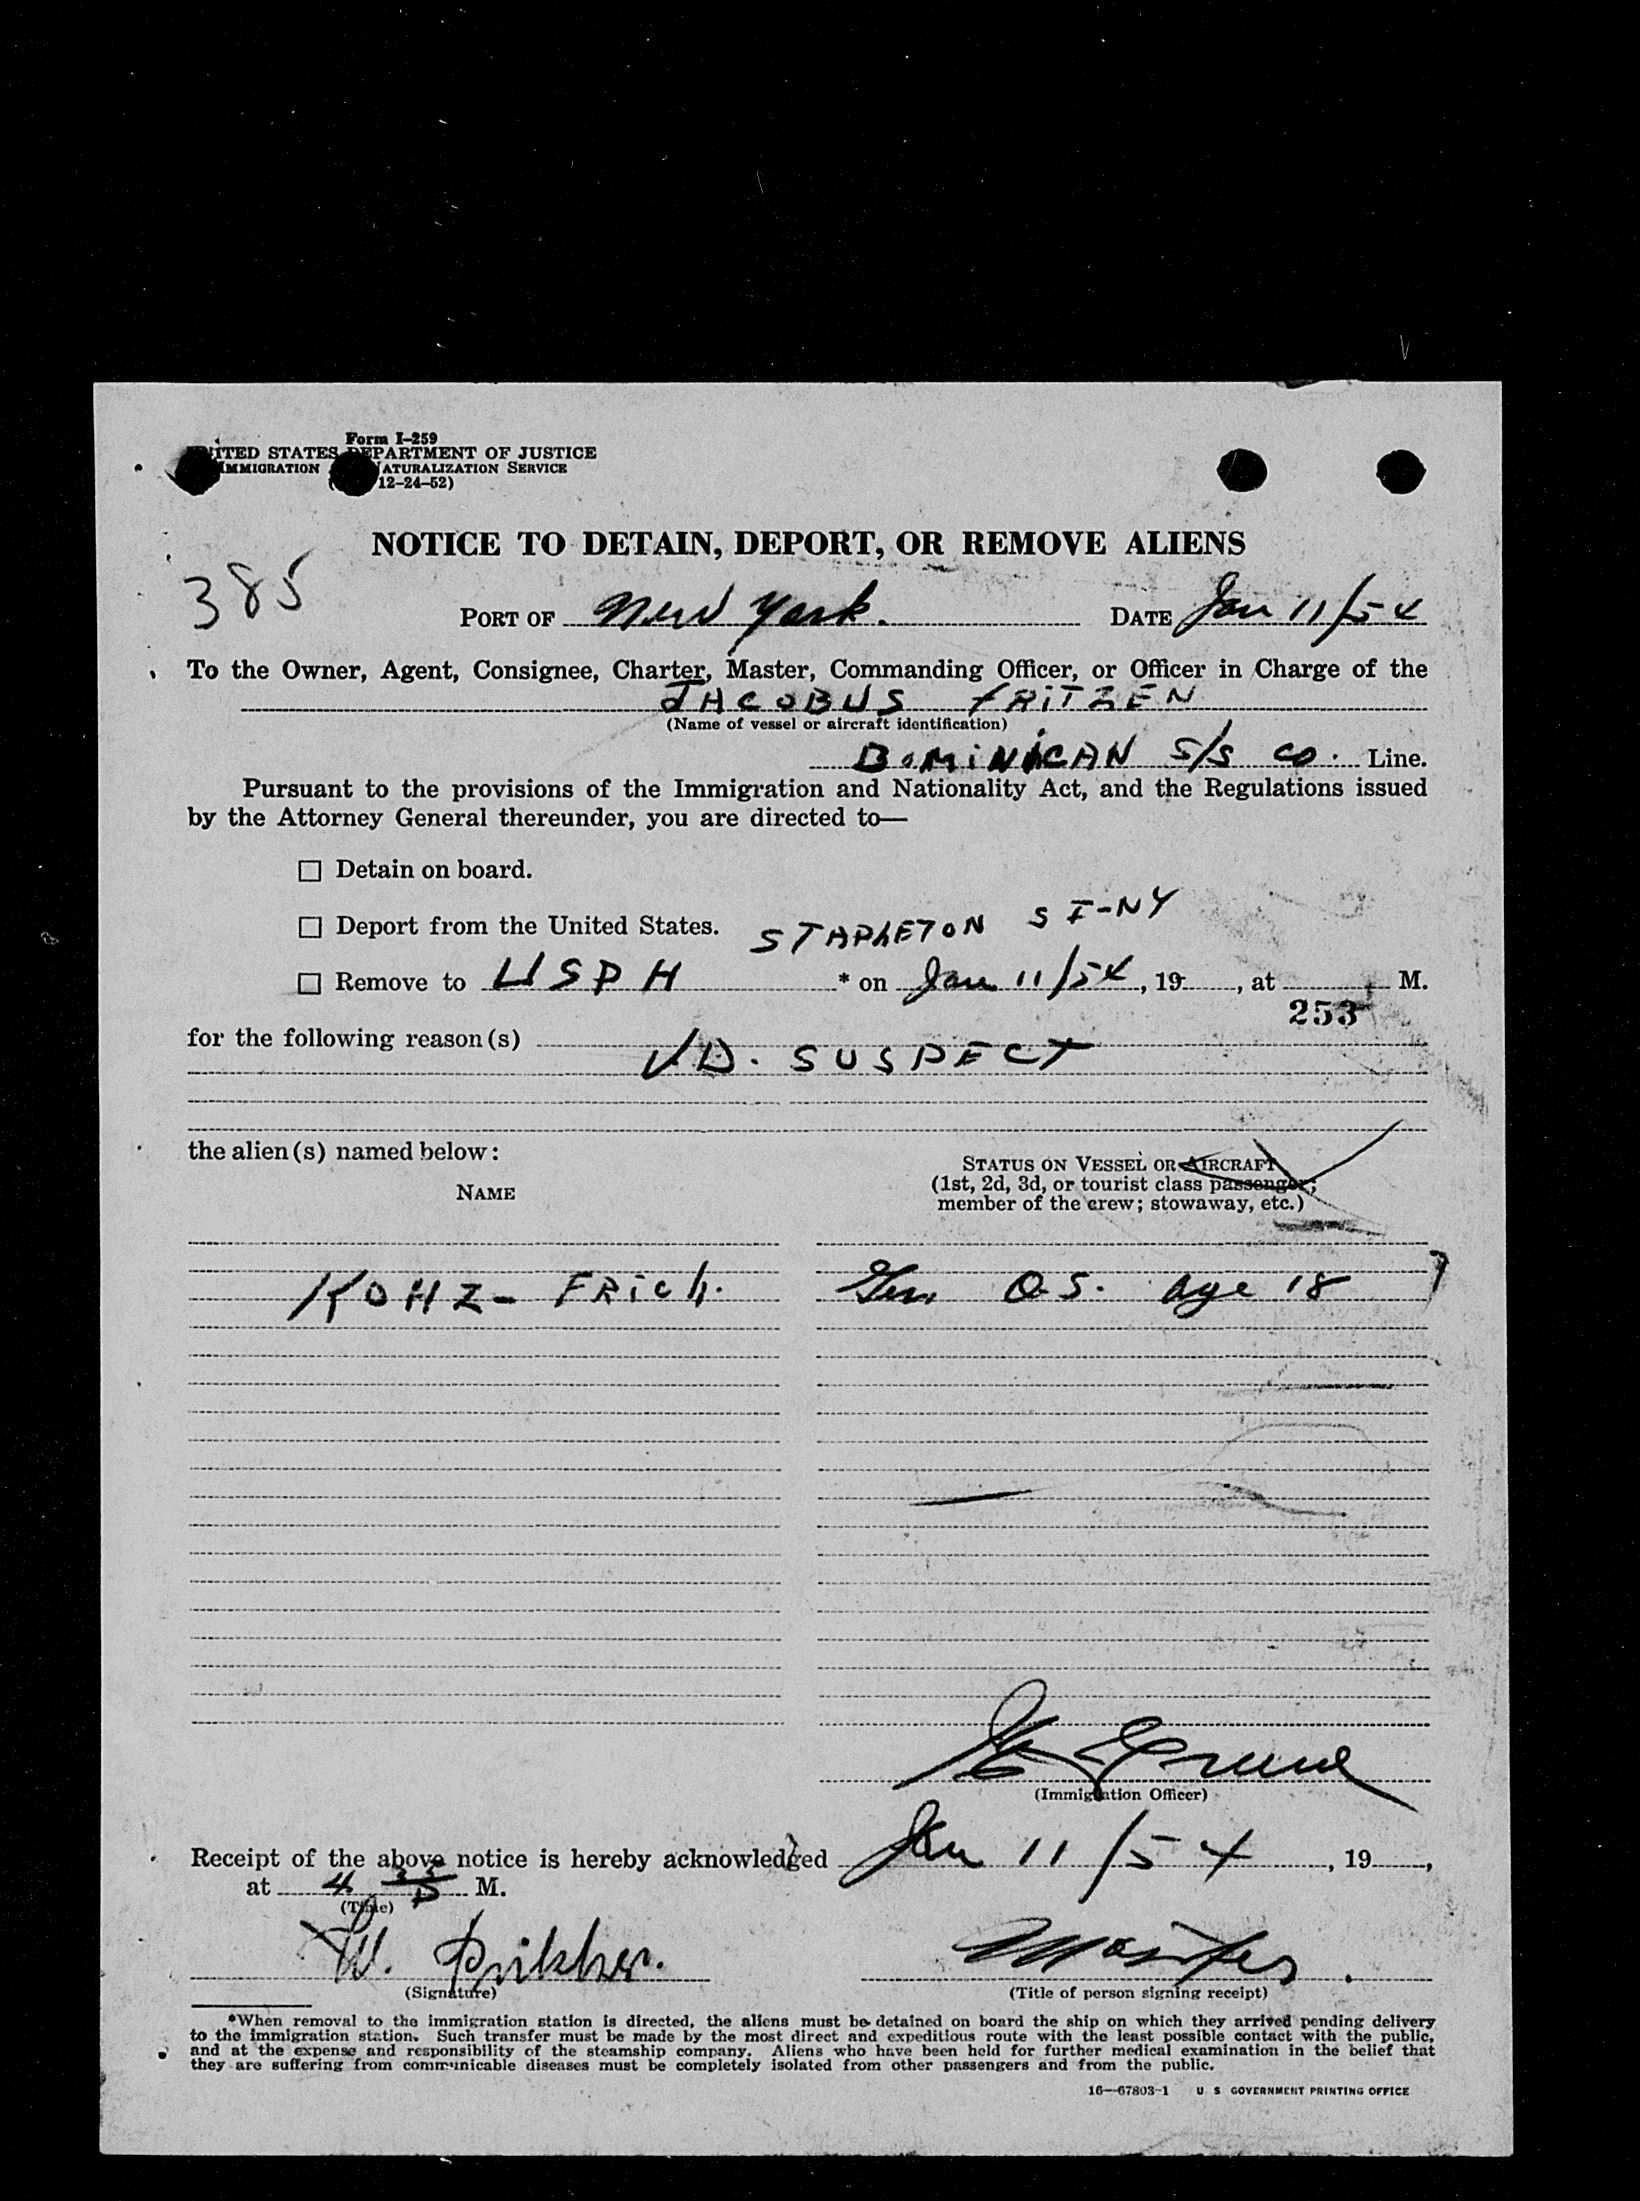 Form I-259
UNITED STATES DEPARTMENT OF JUSTICE
IMMIGRATION NATURALIZATION SERVICE
12-24-52)
NOTICE TO DETAIN, DEPORT, OR REMOVE ALIENS
385
PORT OF New York. DATE Jan 11/54
To the Owner, Agent, Consignee, Charter, Master, Commanding Officer, or Officer in Charge of the
JACOBUS FRITZEN
(Name of vessel or aircraft identification)
DOMINICAN S/S CO. Line.
Pursuant to the provisions of the Immigration and Nationality Act, and the Regulations issued
by the Attorney General thereunder, you are directed to—
☐ Detain on board.
☐ Deport from the United States. STAPLETON S I-NY
☐ Remove to USPH * on Jan 11/54, 19 , at M.
253
for the following reason(s)
VD. SUSPECT
the alien(s) named below:
STATUS ON VESSEL OR AIRCRAFT
(1st, 2d, 3d, or tourist class passenger;
NAME
member of the crew; stowaway, etc.)
KOHZ- FRICH. Ger. O.S. age 18
(Immigration Officer)
Receipt of the above notice is hereby acknowledged Jan 11/54, 19 ,
at 4 35 P M.
(Time)
W.
(Signature)
(Title of person signing receipt)
*When removal to the immigration station is directed, the aliens must be detained on board the ship on which they arrived pending delivery
to the immigration station. Such transfer must be made by the most direct and expeditious route with the least possible contact with the public,
and at the expense and responsibility of the steamship company. Aliens who have been held for further medical examination in the belief that
they are suffering from communicable diseases must be completely isolated from other passengers and from the public.
16—67803-1 U S GOVERNMENT PRINTING OFFICE